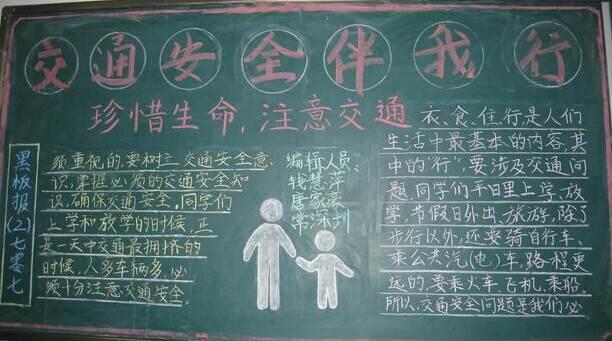 交通安全伴我行
珍惜生命,注意交通
衣、食、住、行是人们
生活中最基本的内容,其
中的“行”,要涉及交通问
题。同学们平日里上学、放
学,节假日外出、旅游,除了
步行以外,还要骑自行车、
乘公共汽(电)车,路程更
远的,要乘火车、飞机、乘船。
所以,交通安全问题是我们必
须重视的,要树立交通安全意
识,掌握必须的交通安全知
识,确保交通安全。同学们
上学和放学的时候,正
是一天中交通最拥挤的
时候,人多车辆多,必
须十分注意交通安全。
编辑人员:
钱慧萍
常深圳
黑板报(2)七零七